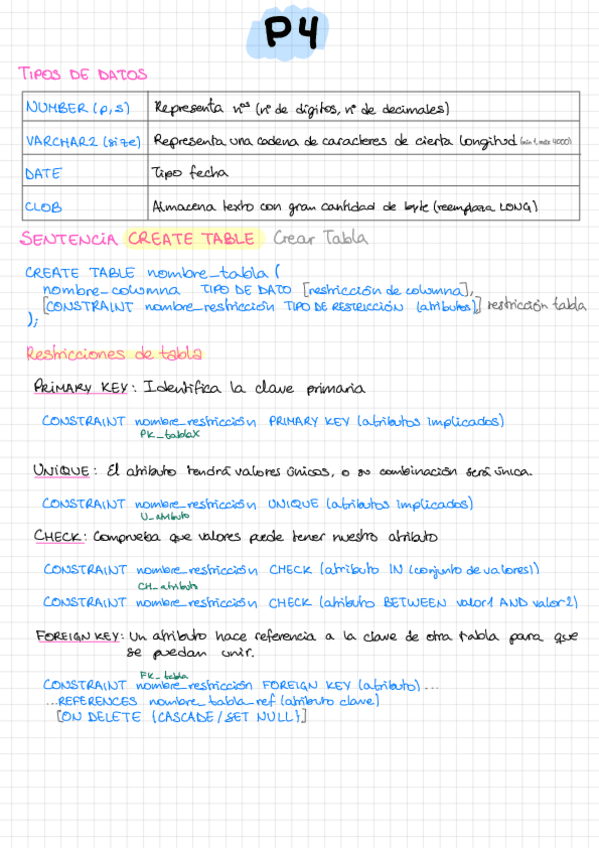 P4
TIPOS DE DATOS
NUMBER (p,s) Representa nºs (nº de dígitos, nº de decimales)
VARCHAR2 (size) Representa una cadena de caracteres de cierta longitud (min 1, máx 4000)
DATE Tipo fecha
CLOB Almacena texto con gran cantidad de byte (reemplaza LONG)
SENTENCIA CREATE TABLE Crear Tabla
CREATE TABLE nombre_tabla (
nombre_columna TIPO DE DATO [restricción de columna],
[CONSTRAINT nombre_restricción TIPO DE RESTRICCIÓN (atributos)] restricción tabla
);
Restricciones de tabla
PRIMARY KEY: Identifica la clave primaria
CONSTRAINT nombre_restricción PRIMARY KEY (atributos implicados)
PK_tablaX
UNIQUE: El atributo tendrá valores únicos, o su combinación será única.
CONSTRAINT nombre_restricción UNIQUE (atributos implicados)
U_atributo
CHECK: Comprueba que valores puede tener nuestro atributo
CONSTRAINT nombre_restricción CHECK (atributo IN (conjunto de valores))
CH_atributo
CONSTRAINT nombre_restricción CHECK (atributo BETWEEN valor1 AND valor2)
FOREIGN KEY: Un atributo hace referencia a la clave de otra tabla para que
se puedan unir.
FK_tabla
CONSTRAINT nombre_restricción FOREIGN KEY (atributo) ...
...REFERENCES nombre_tabla_ref (atributo clave)
[ON DELETE {CASCADE/SET NULL}]